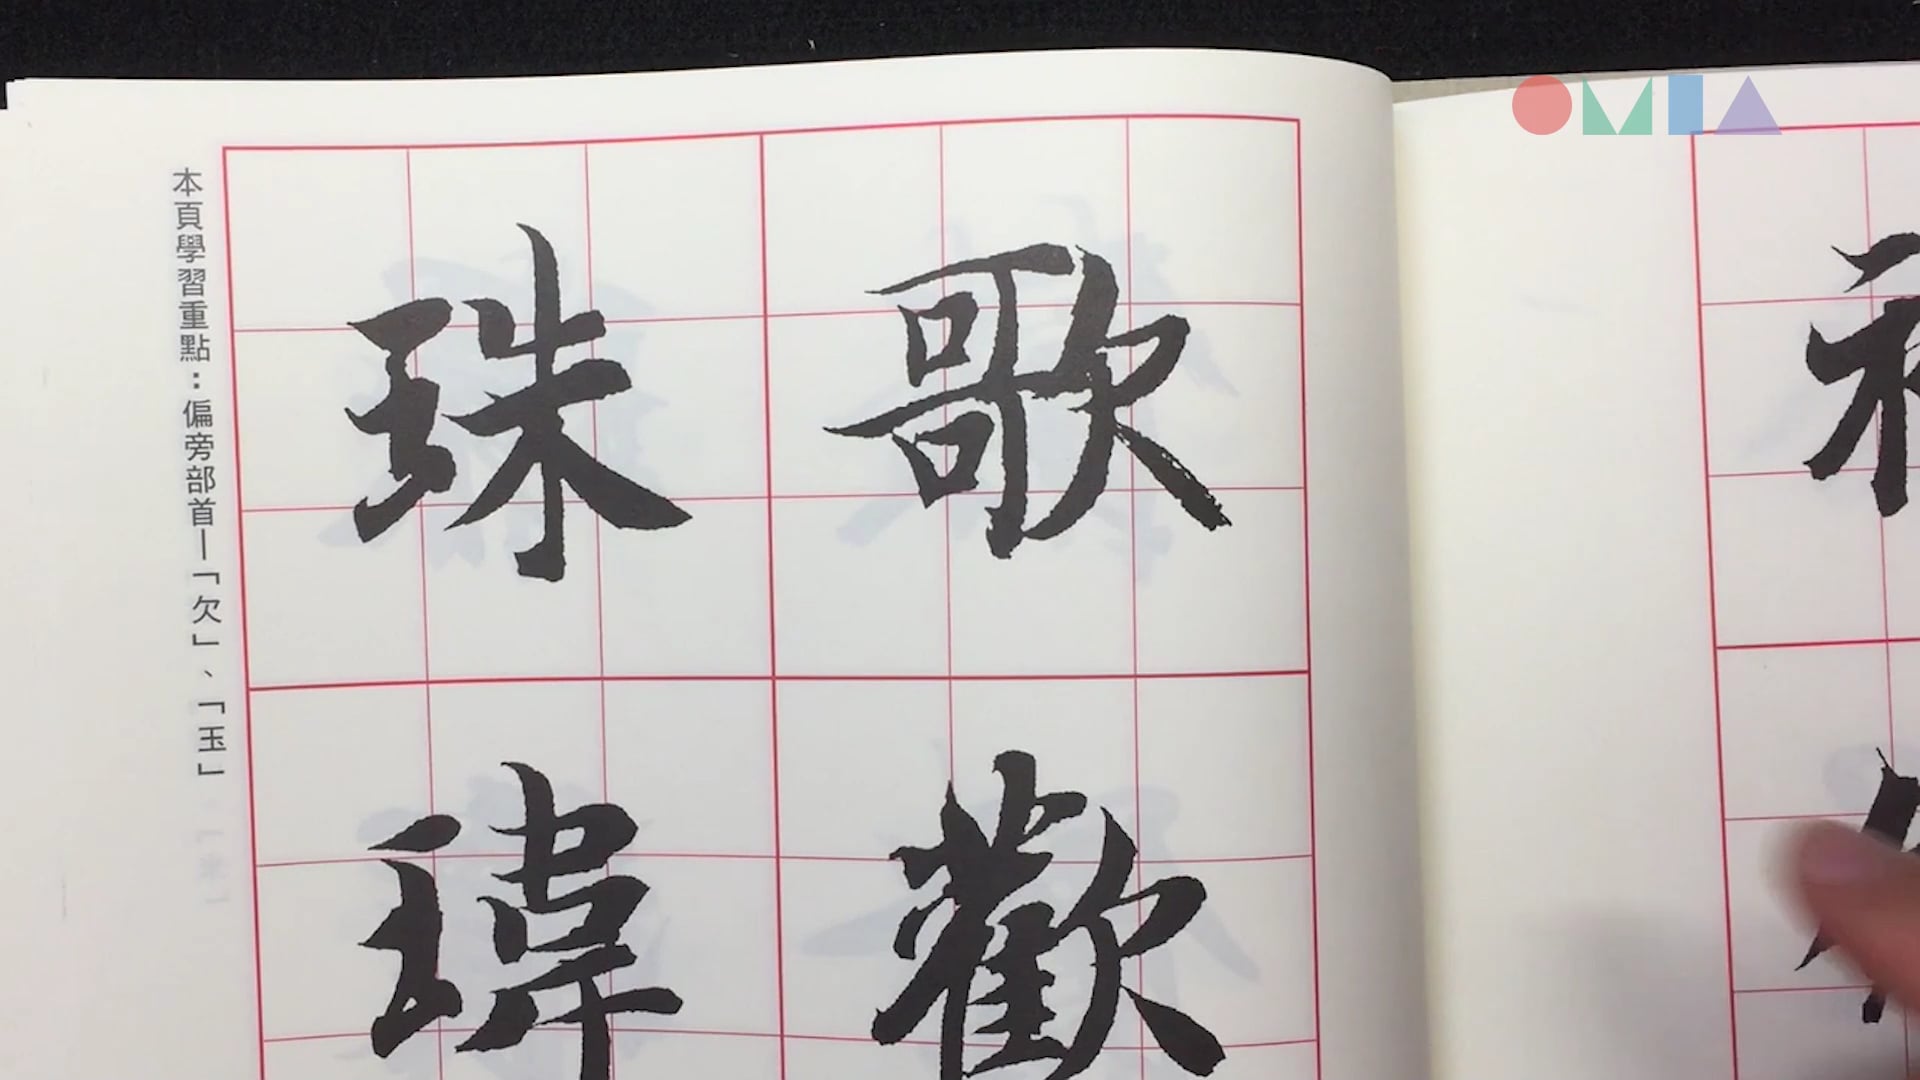 歌
歡
珠
瑋
本頁學習重點：偏旁部首—「欠」、「玉」
OMIA